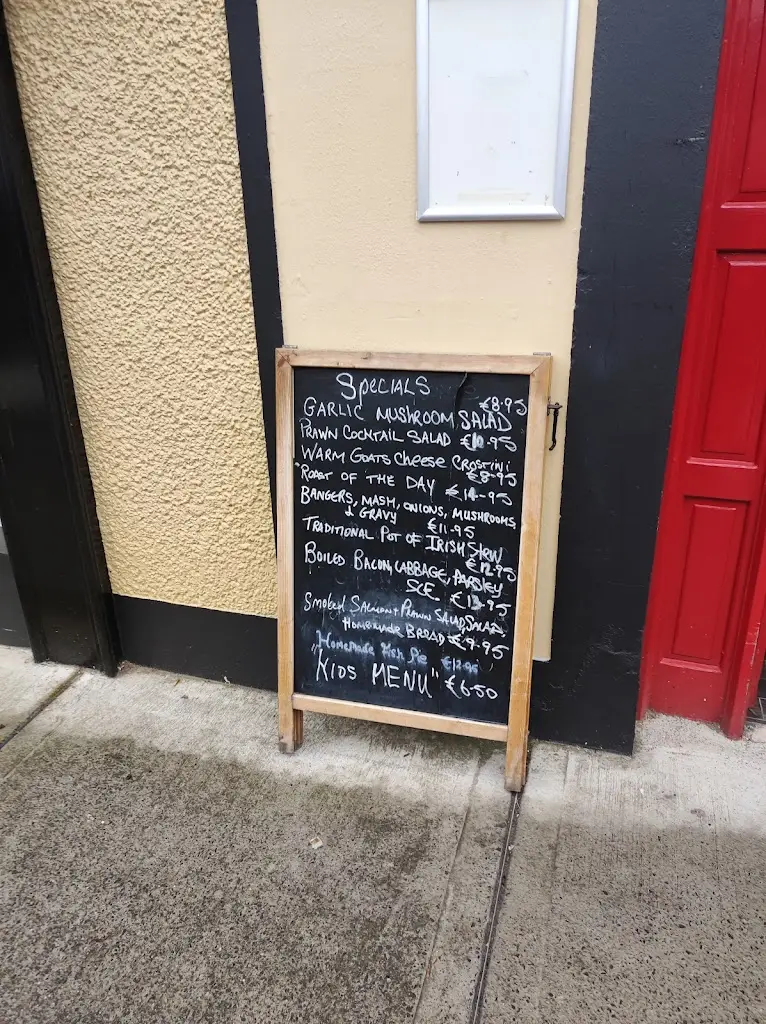 SPECIALS
€8.95
GARLIC MUSHROOM SALAD
PRAWN COCKTAIL SALAD €10.95
WARM GOATS CHEESE CROSTINI
€8-95
"ROAST OF THE DAY €14-95
BANGERS, MASH, ONIONS, MUSHROOMS
& GRAVY €11.95
TRADITIONAL POT OF IRISH STEW
€12.95
BOILED BACON, CABBAGE, PARSLEY
SCE €13.95
SMOKED SALMON + PRAWN SALAD,
HOMEMADE BREAD €9.95
HOMEMADE Fish Pie €12.95
"KIDS MENU" €6.50